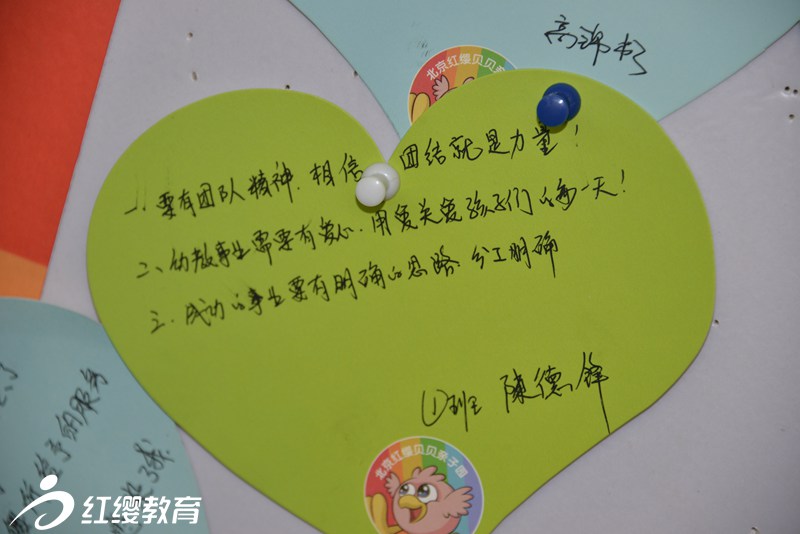 高
北京红缨贝贝
一、要有团队精神.相信 团结就是力量!
二、幼教事业需要有爱心.用爱关爱孩子们的每一天!
三.成功的事业要有明确的思路.分工明确
①班 陳德鋒
北京红缨贝贝亲子园
给予的服务
红缨教育